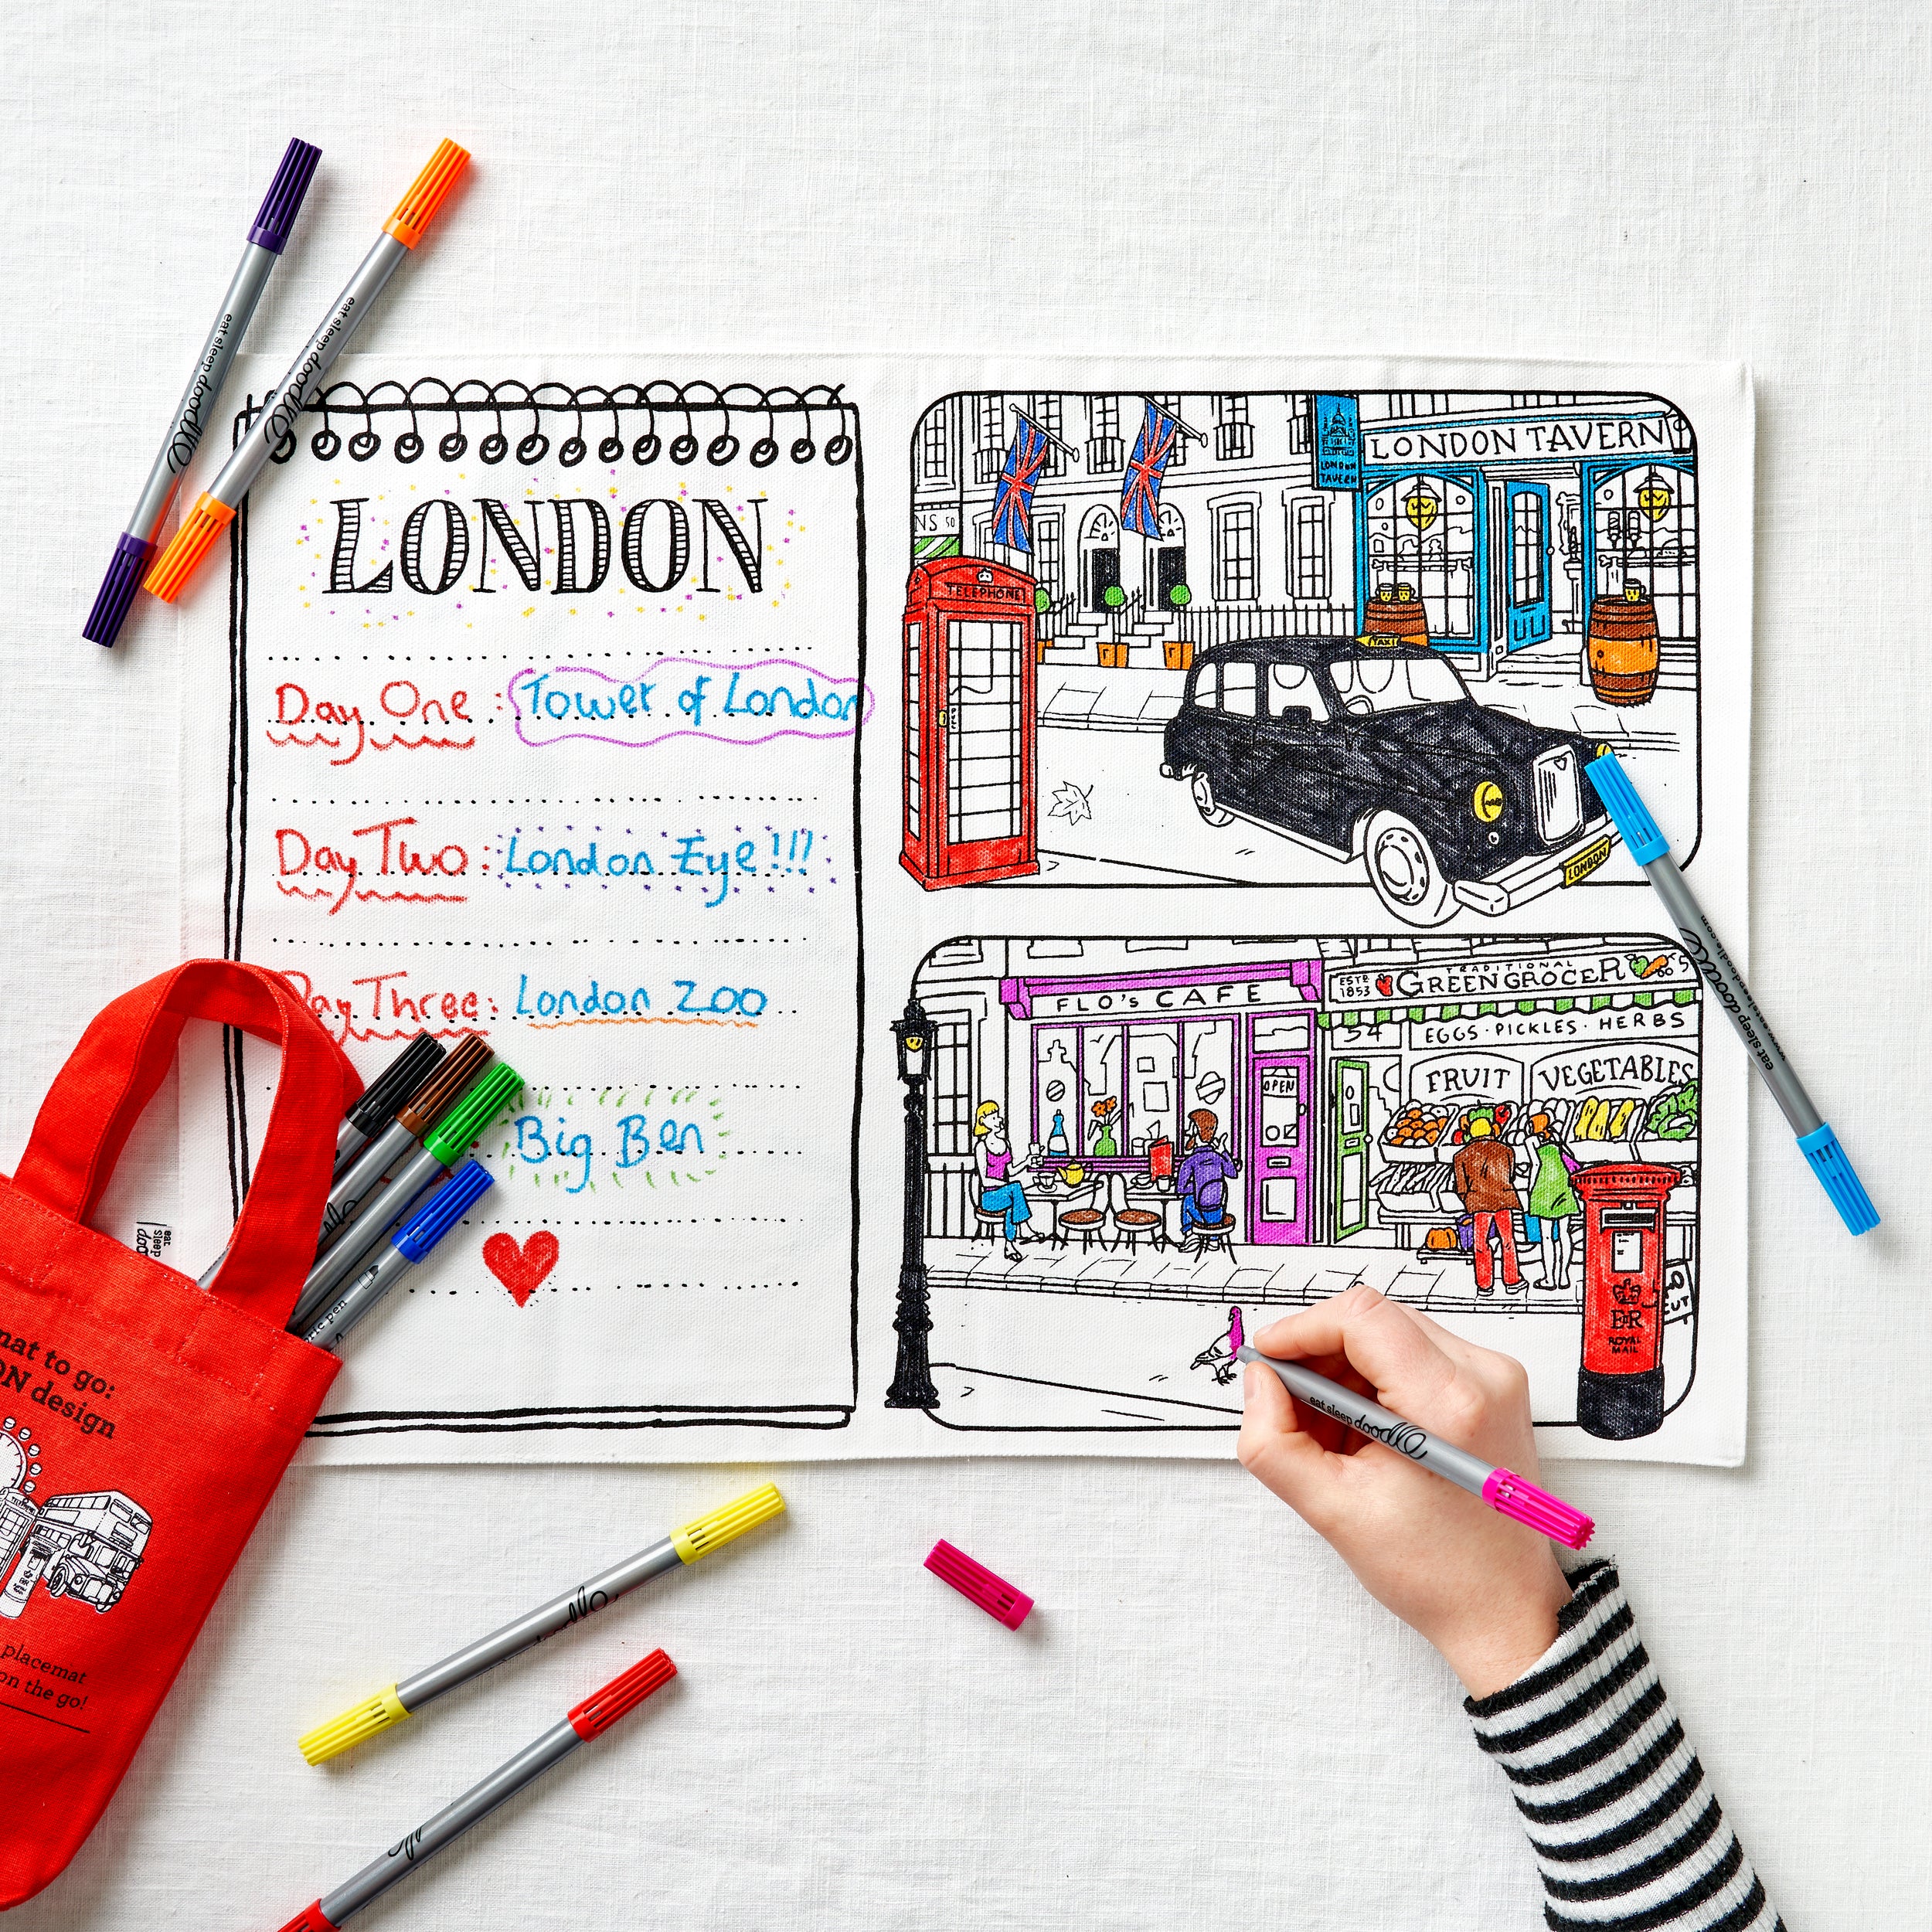 eat sleep doodle
eat sleep doodle
LONDON
Day One : Tower of London
Day Two : London Eye!!!
Day Three: London Zoo
Big Ben
NS 50
LONDON TAVERN
LONDON TAVERN
TELEPHONE
TAXI
LONDON
FLO's CAFE
OPEN
ESTD 1853
TRADITIONAL
GREENGROCER
54
EGGS · PICKLES · HERBS
FRUIT
VEGETABLES
E R
ROYAL
MAIL
eat sleep doodle
www.eatsleepdoodle.com
eat sleep doodle
eat
sleep
mat to go:
ON design
placemat
on the go!
ric pen